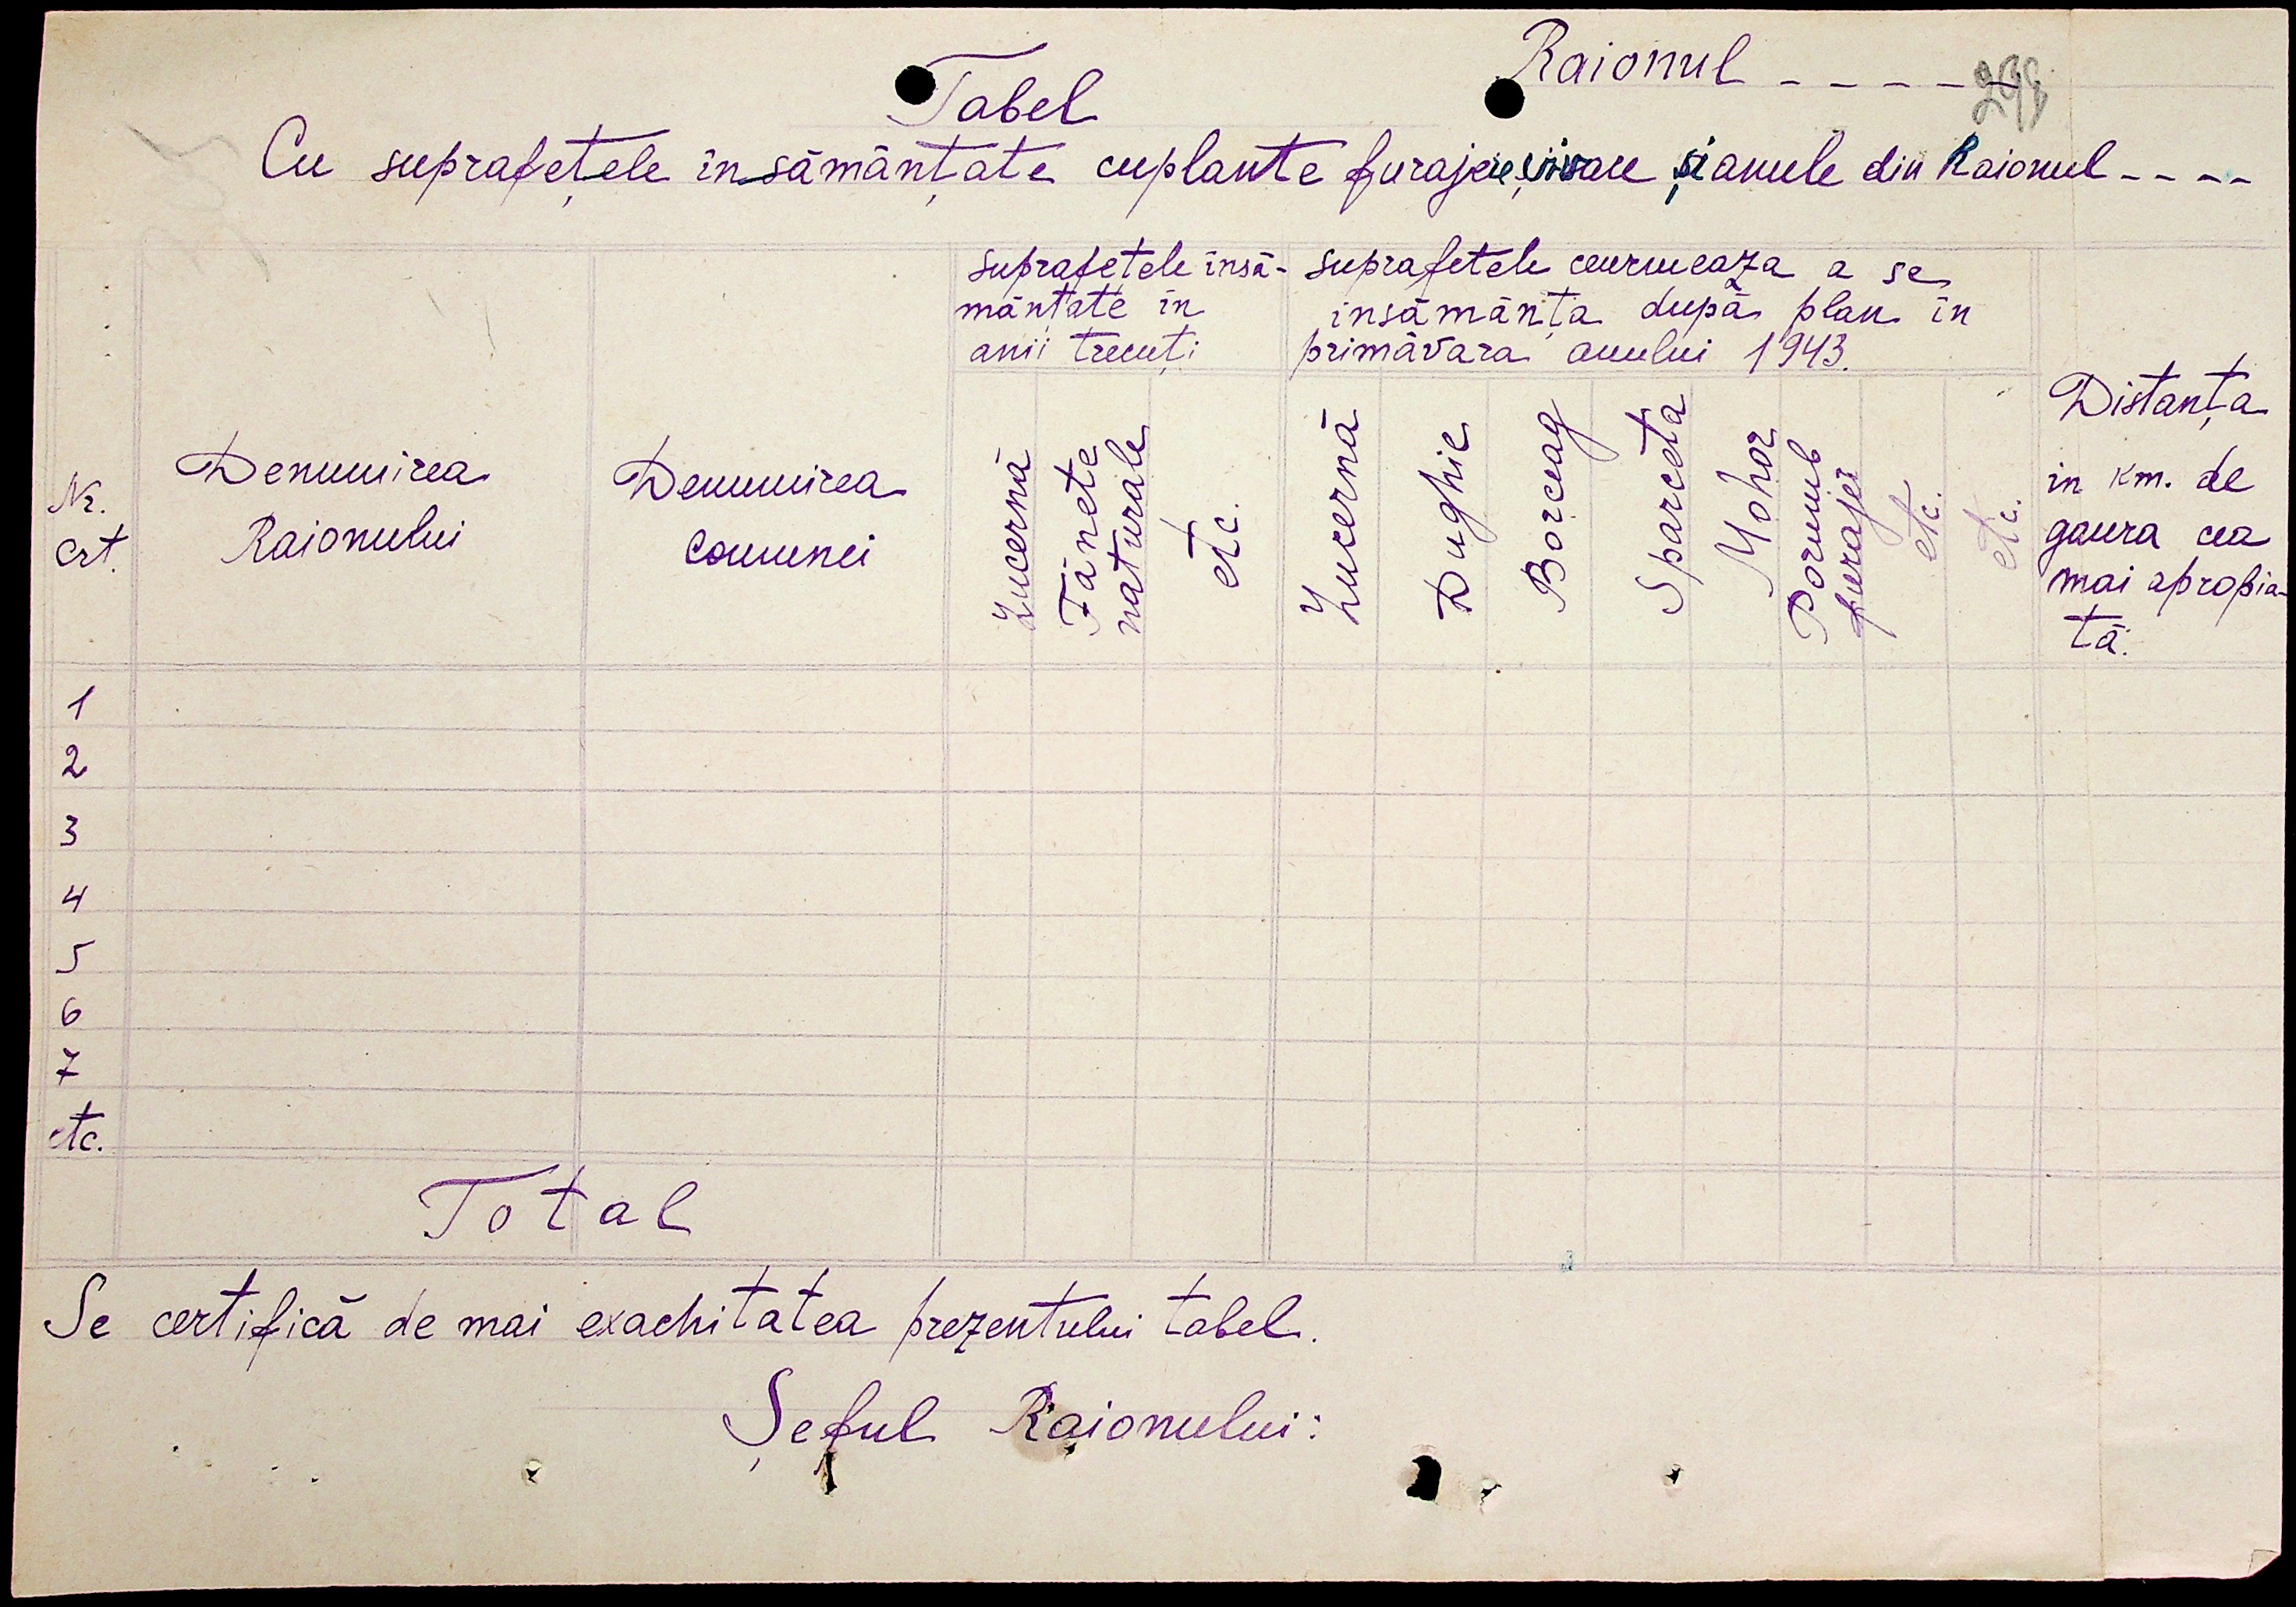 Raionul - - - - -
Tabel
Cu suprafețele însămânțate cuplante furajere și anule din Raionul - - - -
Nr.
crt.
Denumirea
Raionului
Denumirea
comunei
suprafețele însă-
mânțate în
anii trecuți
suprafetele ceurmeaza a se
insămânța după plan în
primăvara anului 1943.
Lucernă
Fânete
naturale
etc.
Lucernă
Dughie
Borceag
Sparceta
Mohor
Porumb
furajer
etc.
etc.
Distanța
in km. de
gaura cea
mai apropia-
tă.
1
2
3
4
5
6
7
etc.
Total
Se certifică de mai exachitatea prezentului tabel.
Șeful Raionului: